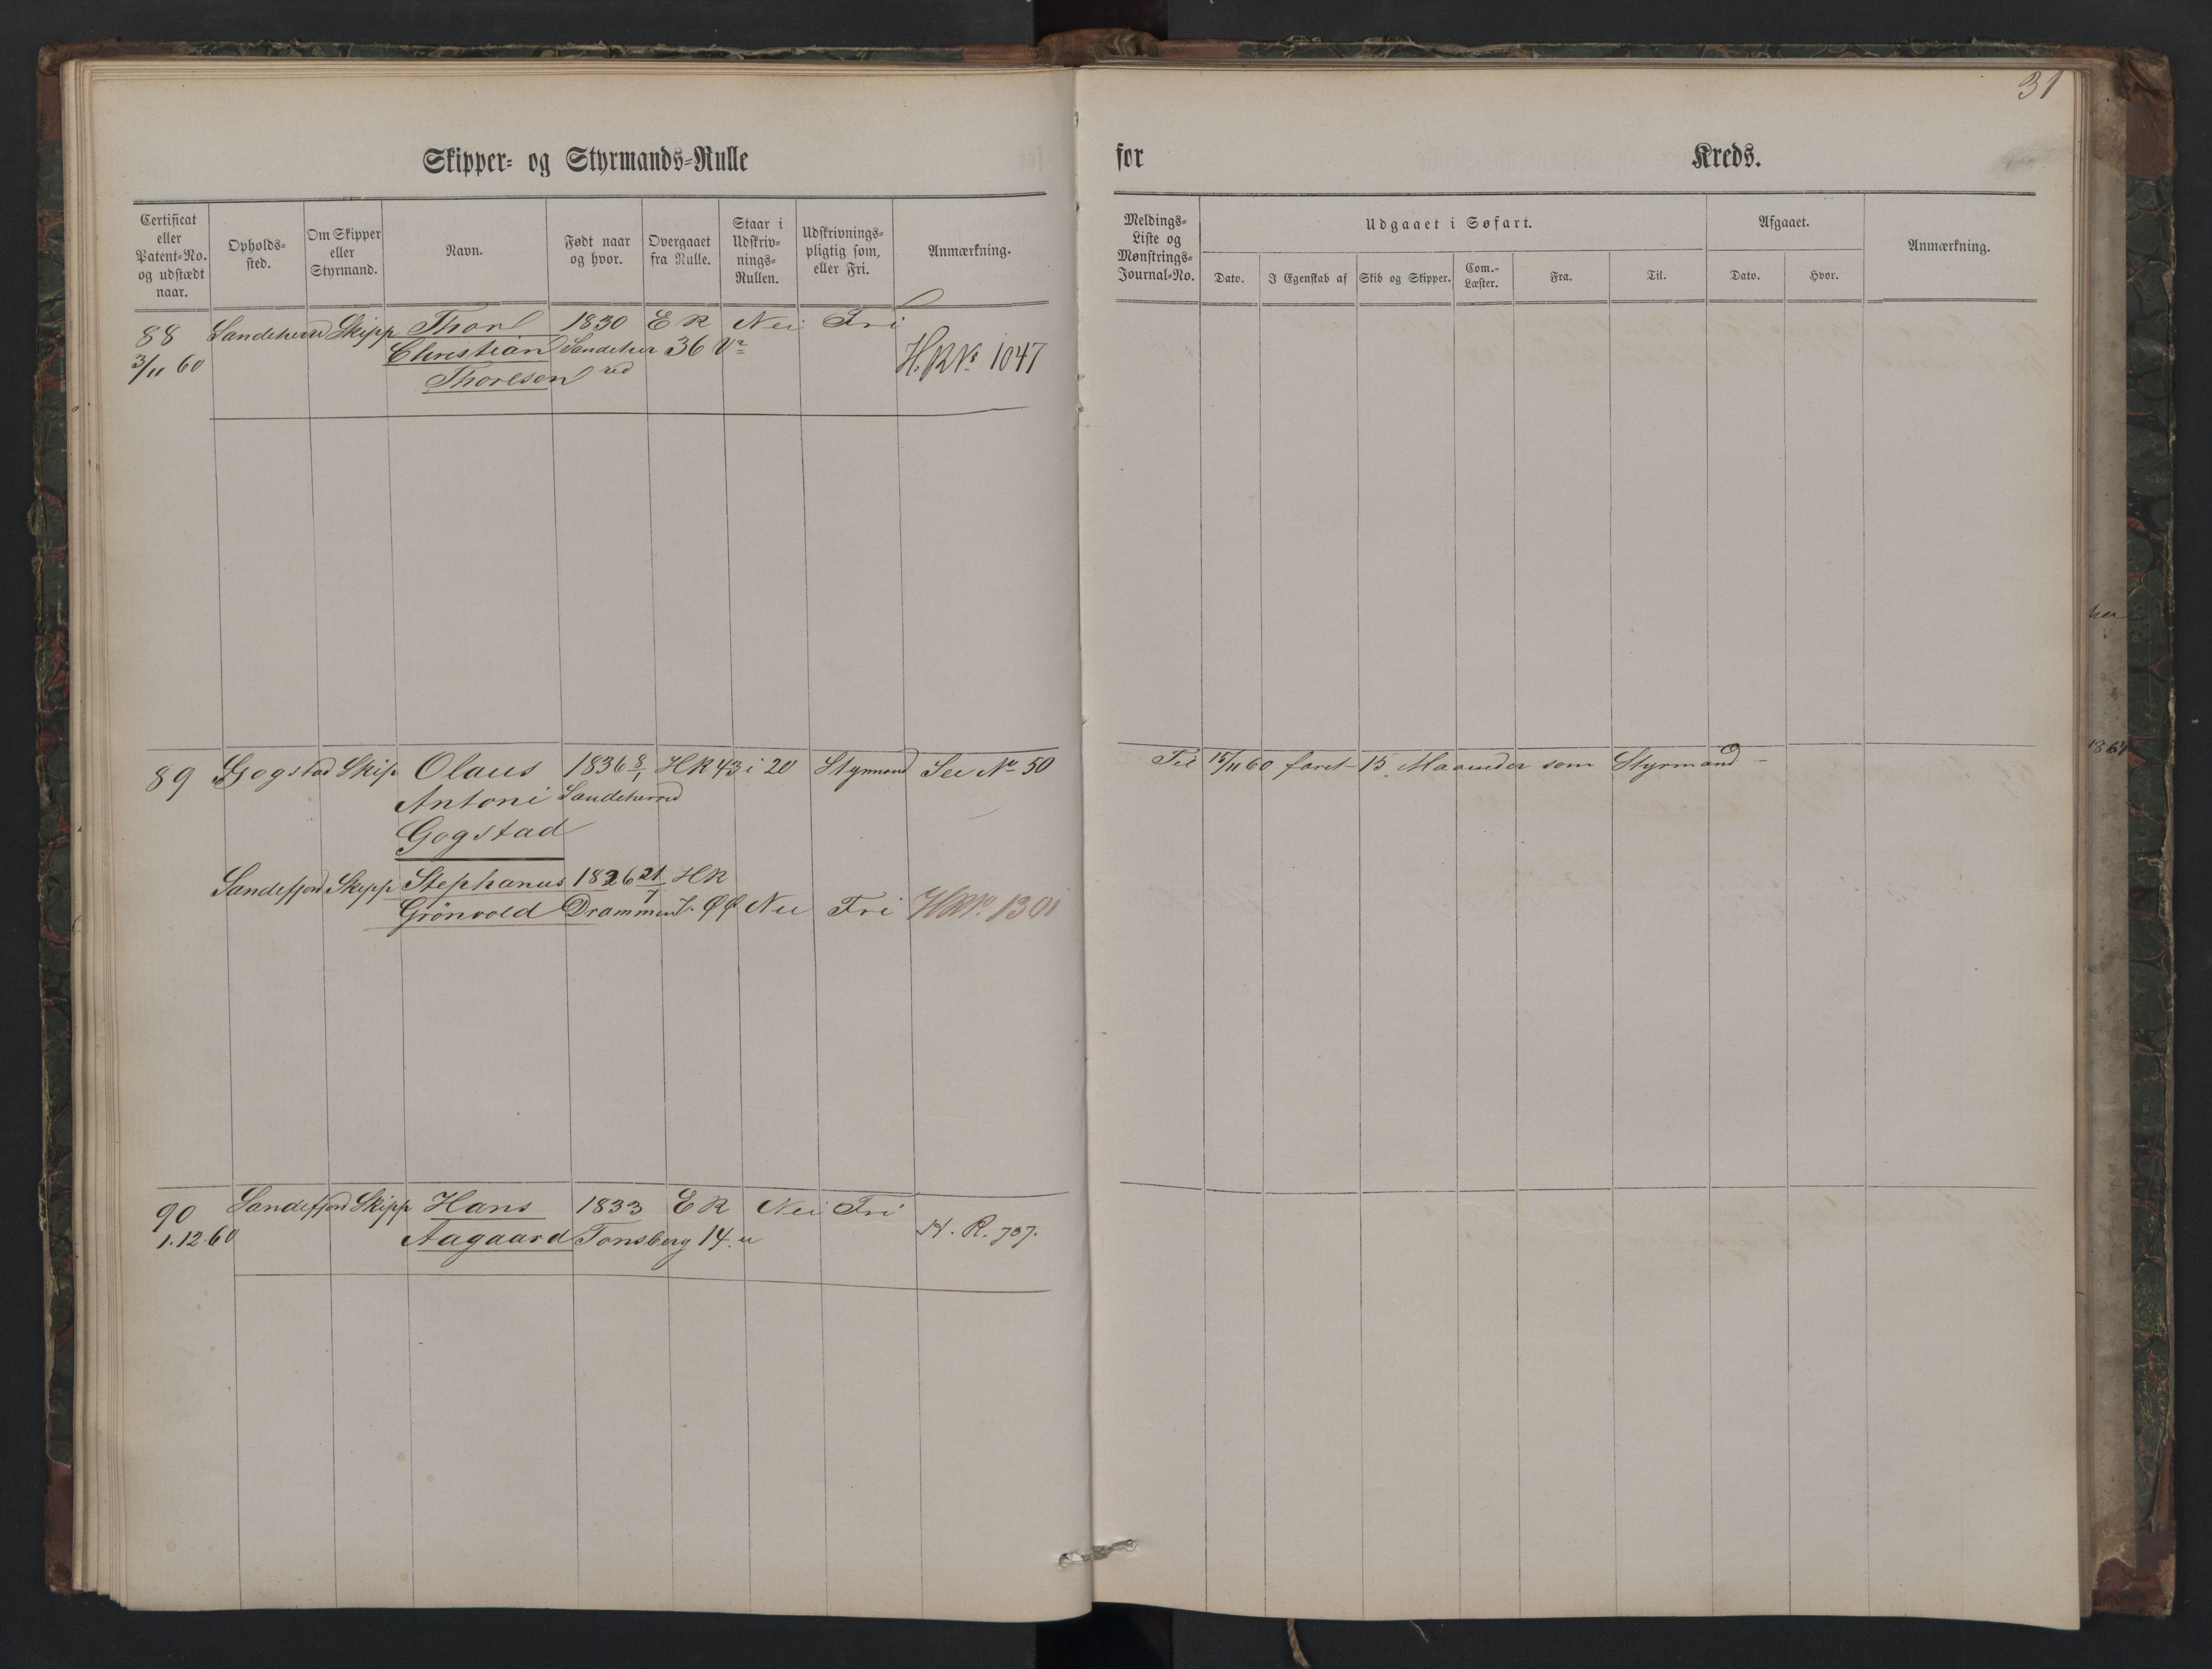 31
Skipper- og Styrmands-Rulle
for Kreds.
Certificat eller Patent-No. og udstædt naar.
Opholds-sted.
Om Skipper eller Styrmand.
Navn.
Født naar og hvor.
Overgaaet fra Rulle.
Staar i Udskriv-nings-Rullen.
Udskrivnings-pligtig som, eller Fri.
Anmærkning.
Meldings-Liste og Mønstrings-Journal-No.
Udgaaet i Søfart.
Dato.
I Egenskab af
Skib og Skipper.
Com.-Læster.
Fra.
Til.
Afgaaet.
Dato.
Hvor.
Anmærkning.
88 Sandeherred Skipp Thorl 1830 E R Nei Fri
3/11 60 Christian Sandeher 36 H. R No 1047
Thorlsen red
89 Gogstad Skip Olaus 1836 8/1 HR 43 i 20 Styrmand See No 50
Antoni Sandeherred
Gogstad
Til 15/11 60 faret 15 Maaneder som Styrmand -
Sandefjord Skipp Stephanus 1826 21/7 HR
Grönvold Drammen Nei Fri
90 Sandefjord Skipp Hans 1833 E R Nei Fri
1.12.60 Aagaard Tonsberg 14 H. R. 737.
her
1864